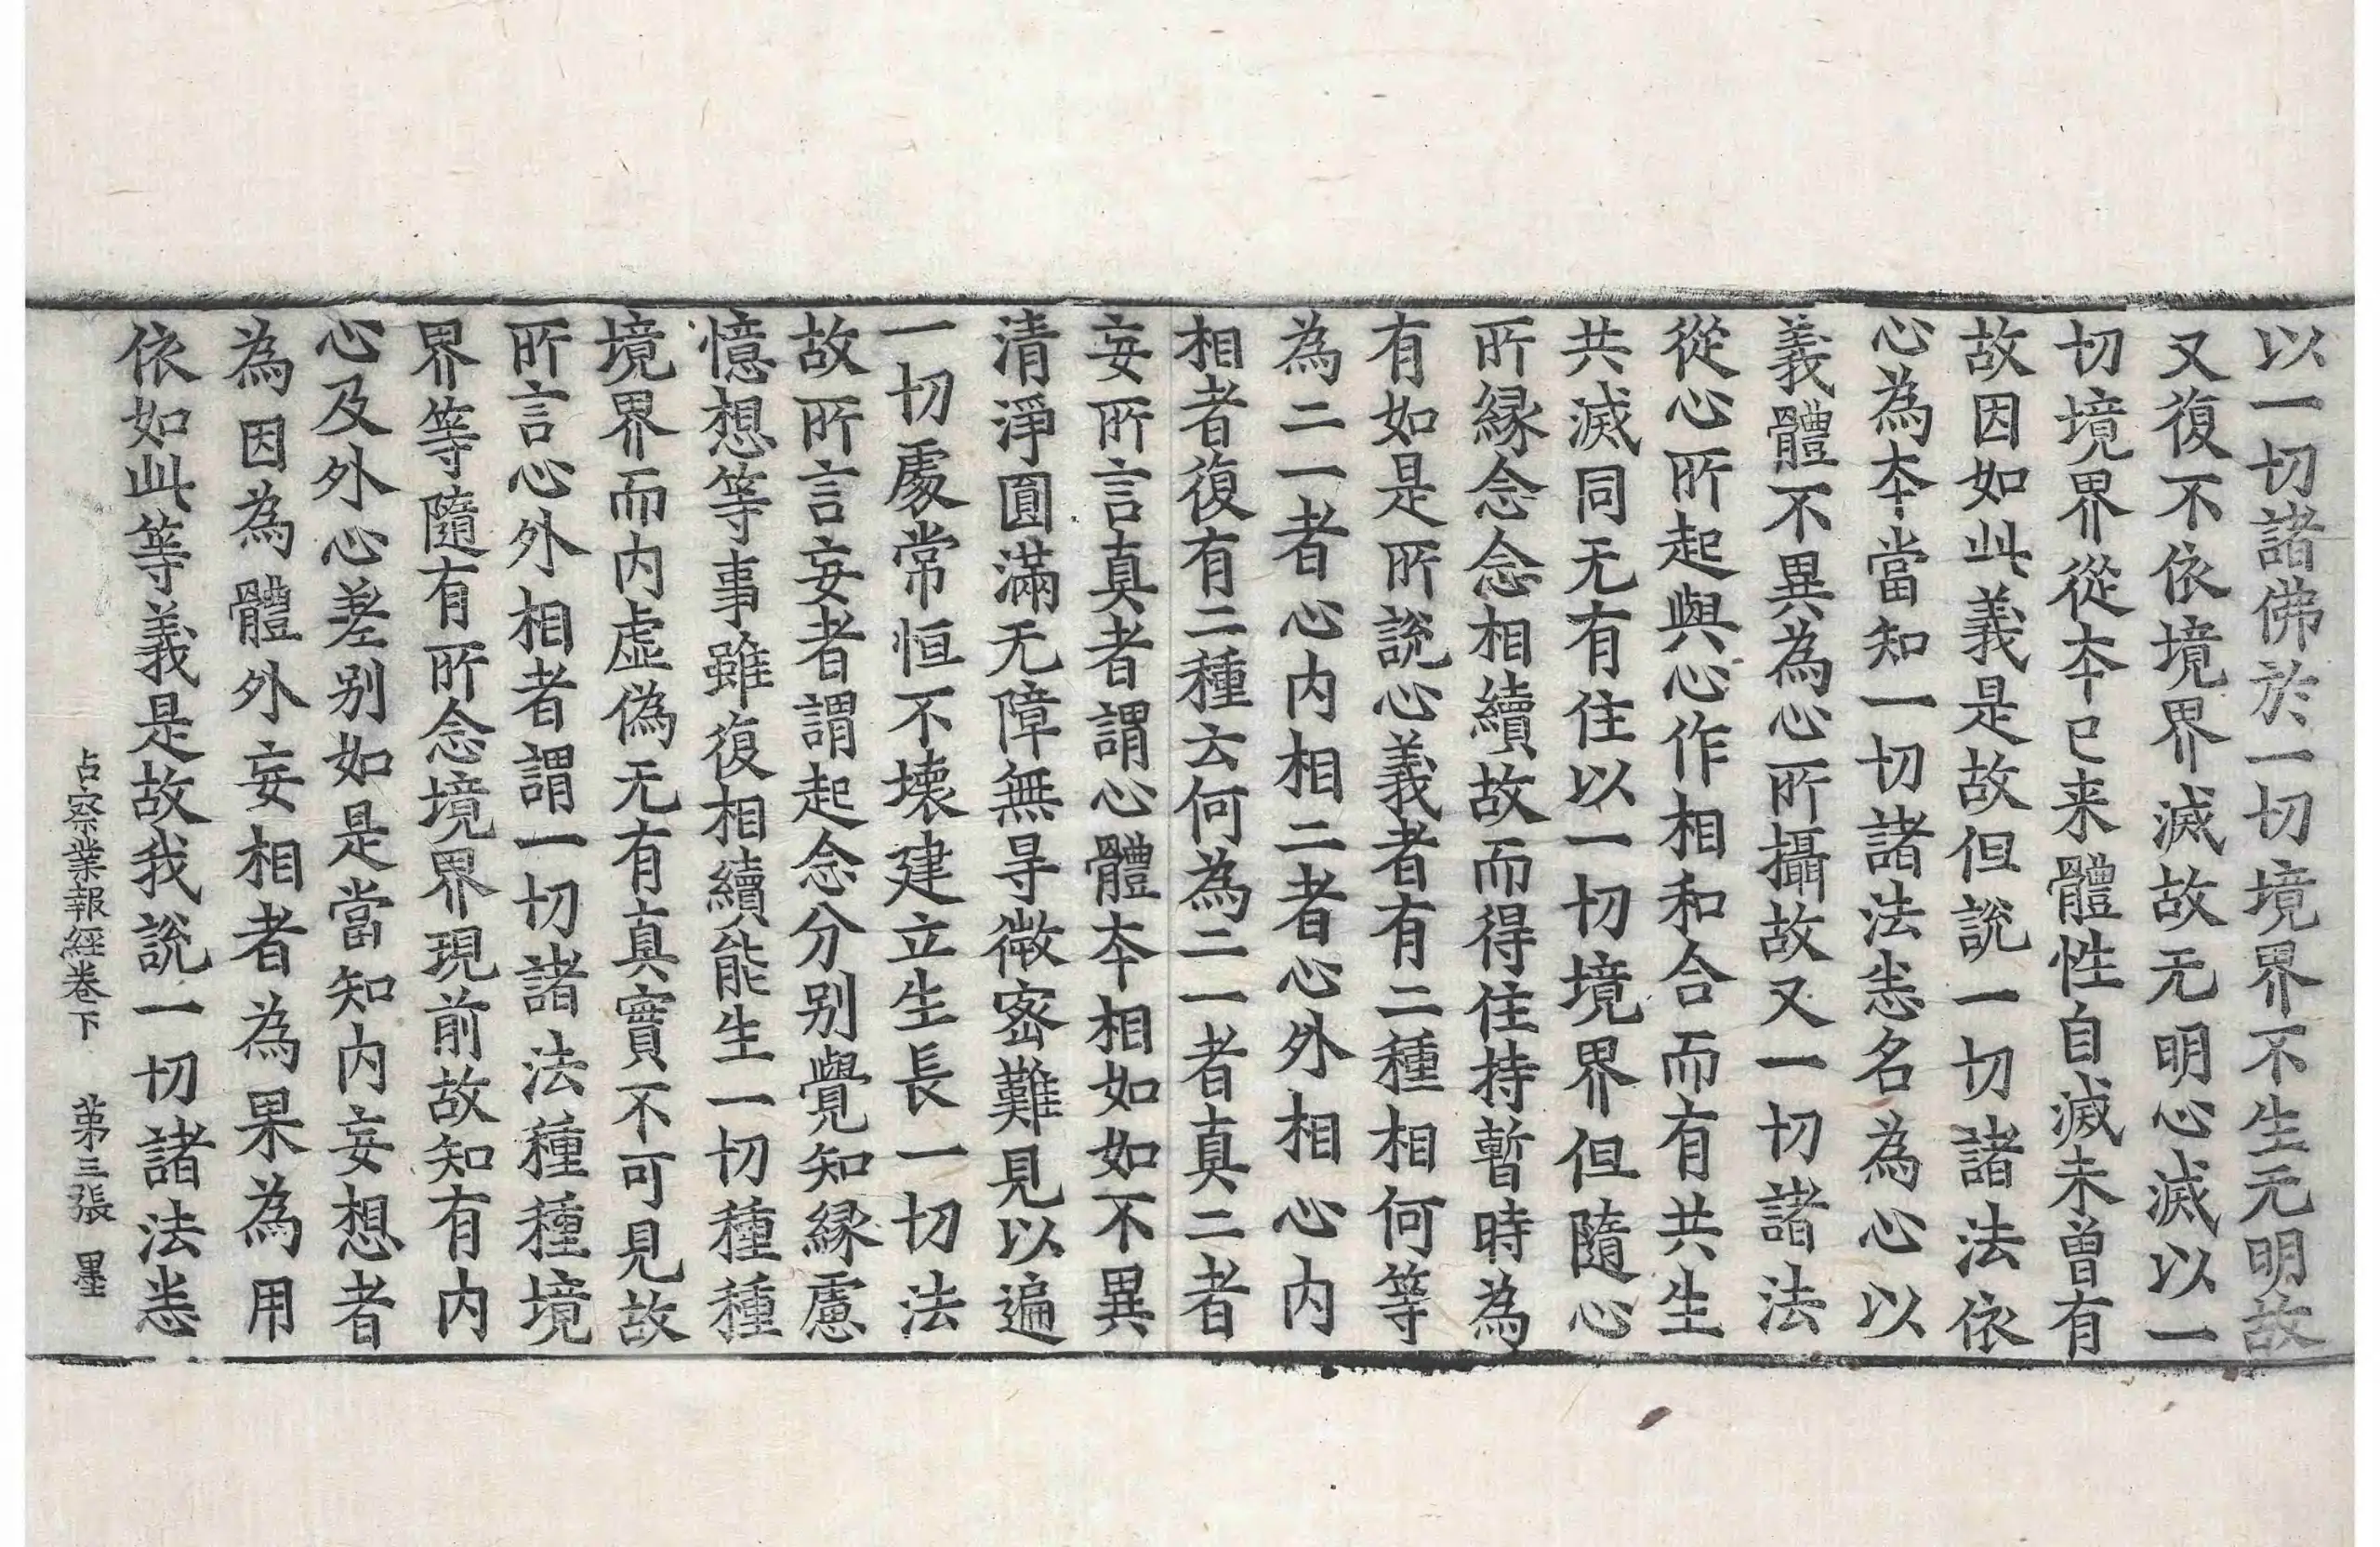 以一切諸佛於一切境界不生无明故
又復不依境界滅故无明心滅以一
切境界從夲已来體性自滅未曾有
故因如此義是故但說一切諸法依
心為夲當知一切諸法悉名為心以
義體不異為心所攝故又一切諸法
從心所起與心作相和合而有共生
共滅同无有住以一切境界但隨心
所縁念念相續故而得住持暫時為
有如是所說心義者有二種相何等
為二一者心内相二者心外相心内
相者復有二種云何為二一者真二者
妄所言真者謂心體夲相如如不異
清淨圓滿无障無㝵微密難見以遍
一切處常恒不壊建立生長一切法
故所言妄者謂起念分别覺知縁慮
憶想等事雖復相續能生一切種種
境界而内虛偽无有真實不可見故
所言心外相者謂一切諸法種種境
界等隨有所念境界現前故知有内
心及外心差别如是當知内妄想者
為因為體外妄相者為果為用
依如此等義是故我說一切諸法悉
占察業報經卷下　第三張　墨